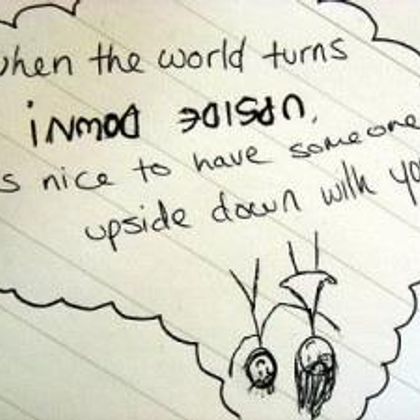 when the world turns
UPSIDE DOWN!
s nice to have someone
upside down with yo